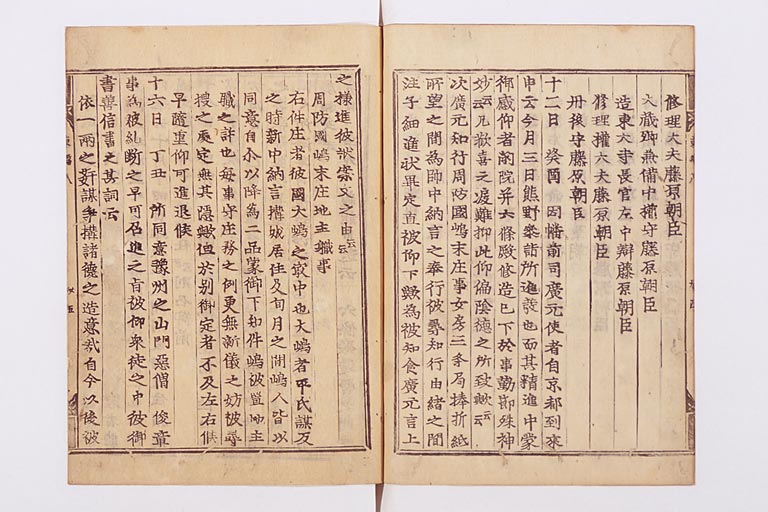 修理大夫藤原朝臣
大蔵卿兼備中權守藤原朝臣
造東大寺長官左中辯藤原朝臣
修理權大夫藤原朝臣
丹後守藤原朝臣
十二日 癸酉 因幡前司廣元使者自京都到來
申云今月三日熊野衆詣所進發也而其精進中蒙
御感仰者前院并六條殿修造已下於事勤節殊神
妙云云凡歡喜之涙難抑此仰偏陰徳之所致歟云云
次廣元知行周防國嶋末庄事女房三条局捧折紙
所望之間為帥中納言之奉行被尋知行由緒之間
注子細進状畢定直被仰下歟為被知食廣元言上
之様進彼状案文之由云云
周防國嶋末庄地主職事
右件庄者彼國大嶋之最中也大嶋者平氏謀反
之時新中納言搆城居住及旬月之間嶋人皆以
同意自尒以降為二品蒙御下知件嶋被置地主
職之許也毎事守庄務之例更無新儀之妨被尋
搜之處定無其隱歟但於別御定者不及左右候
早隨重仰可進退候
十六日 丁丑 所同意豫州之山門惡僧 俊章
事為彼糺斷之早可召進之旨被仰衆徒之中彼御
書善信書之其詞云
依一兩之奸謀争搆諸徳之造意哉自今以後彼